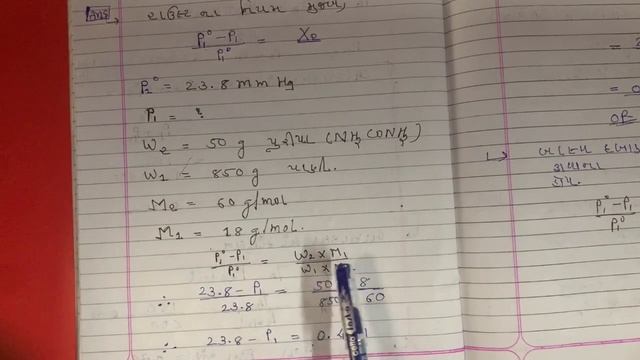 Ans → રાઉલ્ટ ના નિયમ મુજબ,
P₁° - P₁ / P₁° = X₂
P₁° = 23.8 mm Hg
P₁ = ?
W₂ = 50 g યુરીયા (NH₂CONH₂)
W₁ = 850 g પાણી.
M₂ = 60 g/mol
M₁ = 18 g/mol.
P₁° - P₁ / P₁° = W₂ × M₁ / W₁ ×
∴ 23.8 - P₁ / 23.8 = 50 8 / 850 60
∴ 23.8 - P₁ = 0.
=
= 0
OR
P₁° - P₁ / P₁°